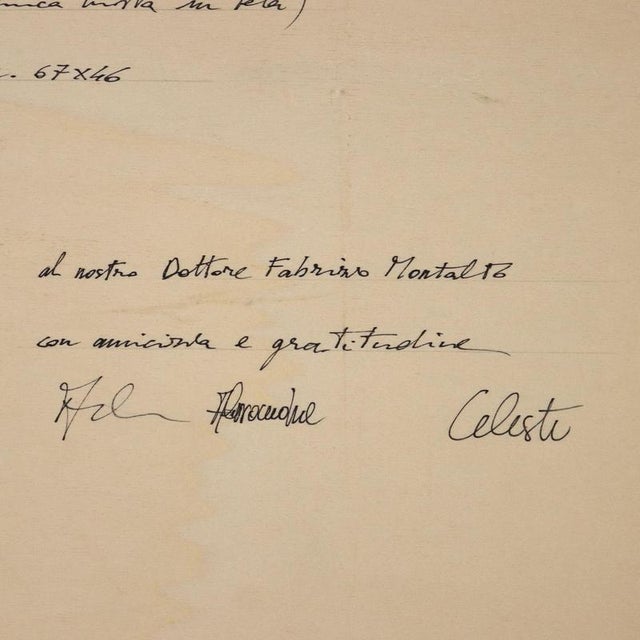 mista su tela)
. 67x46
al nostro Dottore Fabrizio Montalto
con amicizia e gratitudine
Celeste